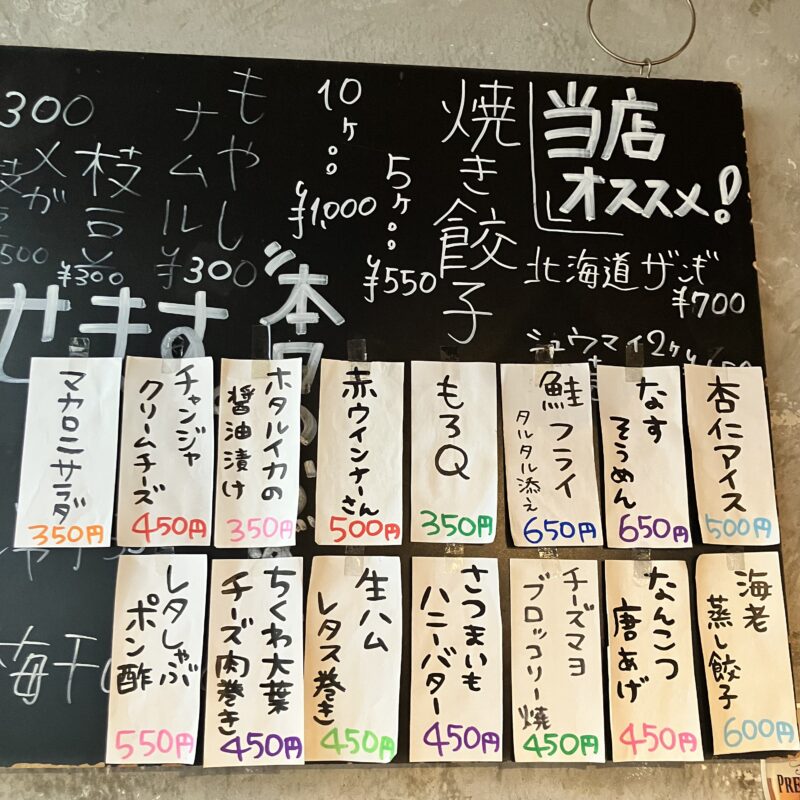 当店
オススメ!
北海道ザンギ
¥700
シュウマイ2ヶ
焼き餃子
5ヶ
¥550
10ヶ
¥1,000
もやし
ナムル
¥300
枝豆
¥300
300
500
本
せます
梅干
杏仁アイス
500円
なす
そうめん
650円
鮭フライ
タルタル添え
650円
もろQ
350円
赤ウインナーさん
500円
ホタルイカの
醤油漬け
350円
チャンジャ
クリームチーズ
450円
マカロニサラダ
350円
海老
蒸し餃子
600円
なんこつ
唐あげ
450円
チーズマヨ
ブロッコリー焼
450円
さつまいも
ハニーバター
450円
生ハム
レタス巻き
450円
ちくわ大葉
チーズ肉巻き
450円
レタしゃぶ
ポン酢
550円
PRE